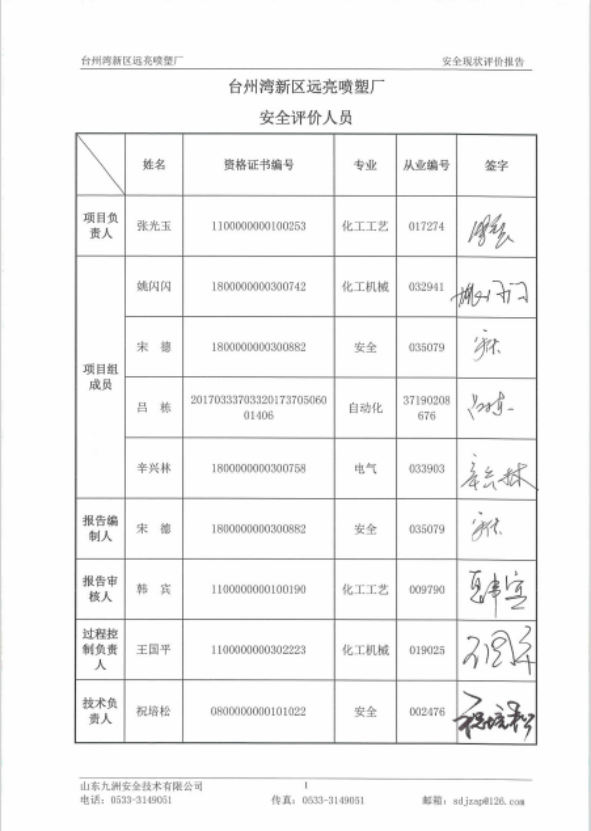 台州湾新区远亮喷塑厂 安全现状评价报告
台州湾新区远亮喷塑厂
安全评价人员
姓名 资格证书编号 专业 从业编号 签字
项目负责人 张光玉 1100000000100253 化工工艺 017274
项目组成员
姚闪闪 1800000000300742 化工机械 032941
宋 德 1800000000300882 安全 035079
吕 栋 20170333703320173705060
01406 自动化 37190208
676
辛兴林 1800000000300758 电气 033903
报告编制人 宋 德 1800000000300882 安全 035079
报告审核人 韩 宾 1100000000100190 化工工艺 009790
过程控制负责人 王国平 1100000000302223 化工机械 019025
技术负责人 祝培松 0800000000101022 安全 002476 祝培松
山东九洲安全技术有限公司 1
电话：0533-3149051 传真：0533-3149051 邮箱：sdjzap@126.com